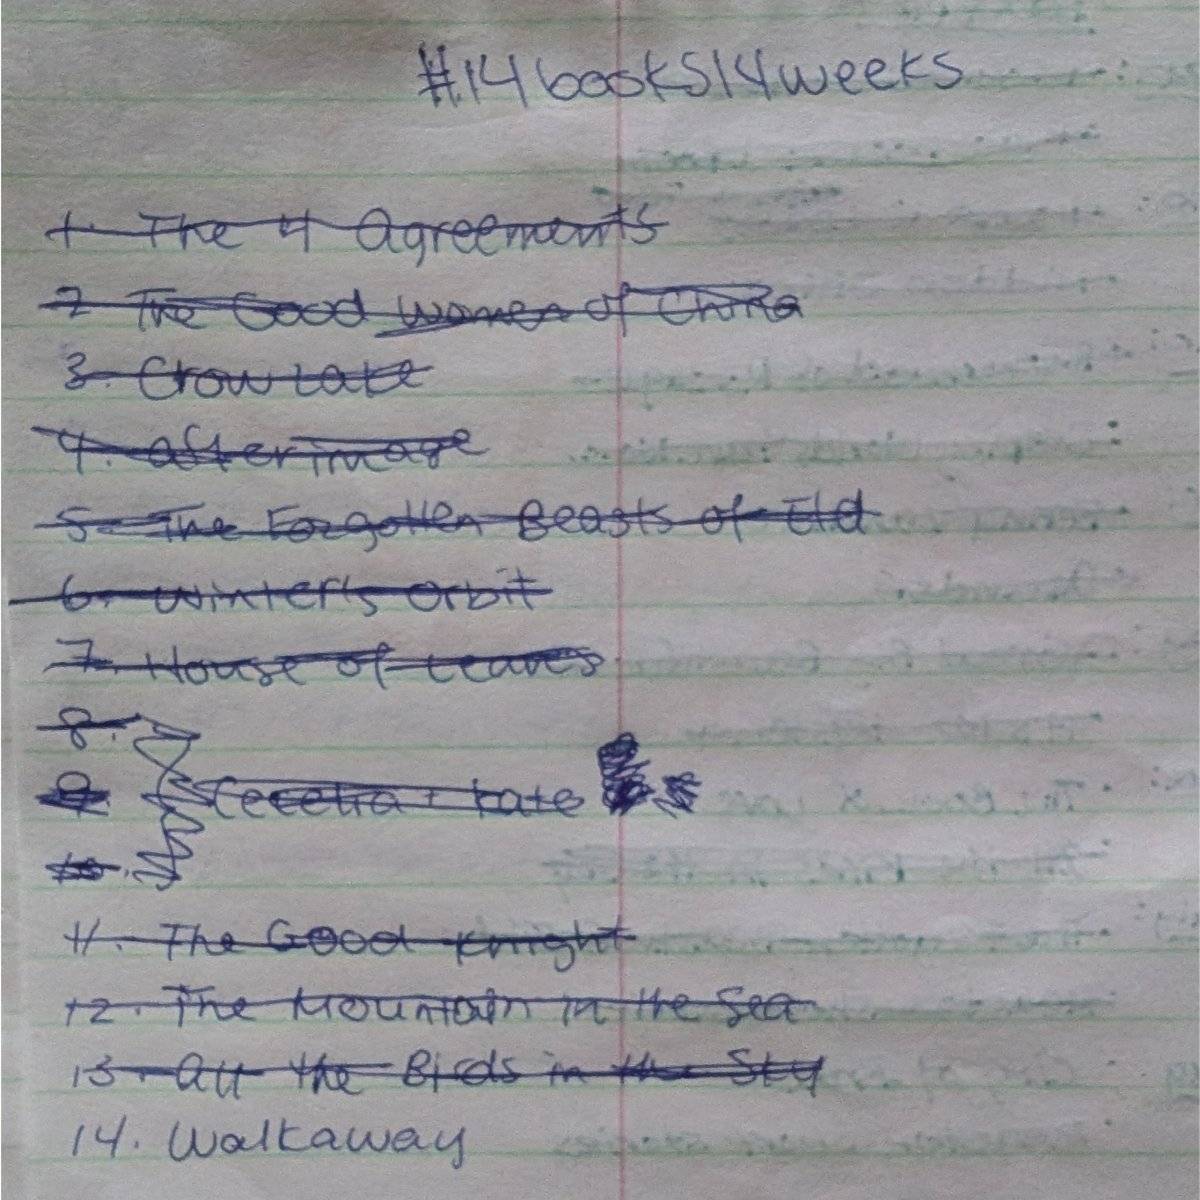 #14books14weeks
1. The 4 Agreements
2 The Good Women of China
3. Crow Lake
4. afterimage
5. The Forgotten Beasts of Eld
6. Winter's Orbit
7. House of Leaves
8.
9. Cecelia + Kate
10.
11. The Good Knight
12. The Mountain in the Sea
13. All the Birds in the Sky
14. Walkaway